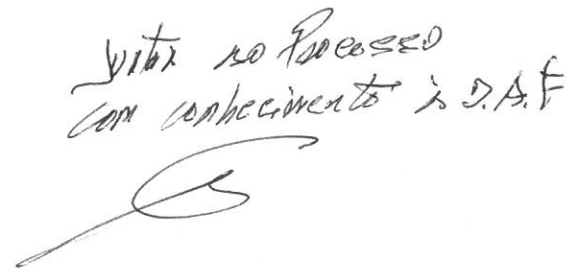 Juntar ao Processo
com conhecimento à D.A.F